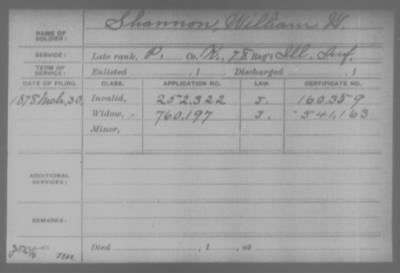 NAME OF SOLDIER: Shannon, William H.
SERVICE: Late rank, P. Co. K, 78 Reg't Ill. Inf.
TERM OF SERVICE: Enlisted , 1 Discharged , 1
DATE OF FILING. CLASS. APPLICATION NO. LAW. CERTIFICATE NO.
1878 Mch. 30, Invalid, 252.322 J. 160.359
Widow, 760.197 J. 541.163
Minor,
ADDITIONAL SERVICES:
REMARKS:
Died , 1 , at